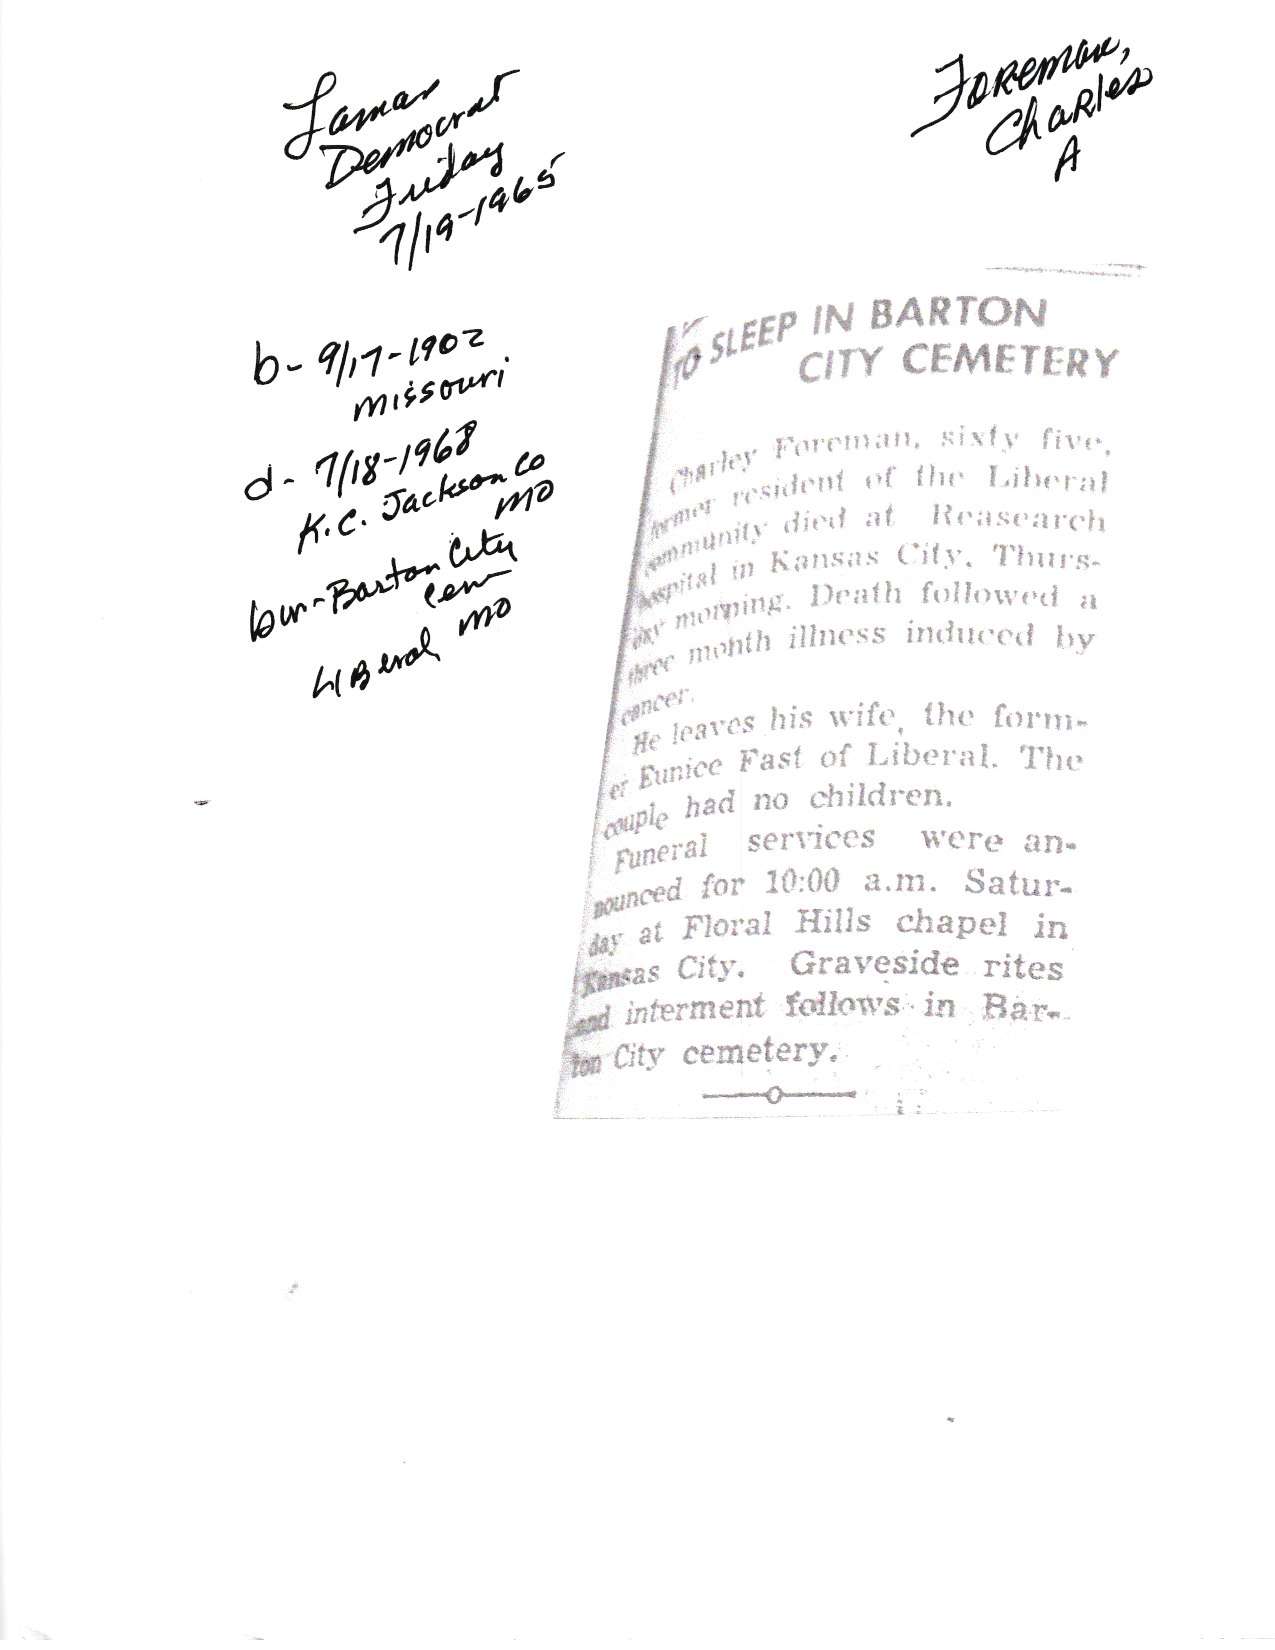 Lamar
Democrat
Friday
7/19-1965
Foreman,
Charles
A
b- 9/17-1902
Missouri
d- 7/18-1968
K.C. Jackson Co
MO
bur-Barton City
Cem
Liberal, MO
TO SLEEP IN BARTON
CITY CEMETERY
Charley Foreman, sixty five,
former resident of the Liberal
community died at Reasearch
hospital in Kansas City, Thurs-
day morning. Death followed a
three month illness induced by
cancer.
He leaves his wife, the form-
er Eunice Fast of Liberal. The
couple had no children.
Funeral services were an-
nounced for 10:00 a.m. Satur-
day at Floral Hills chapel in
Kansas City. Graveside rites
and interment follows in Bar-
ton City cemetery.